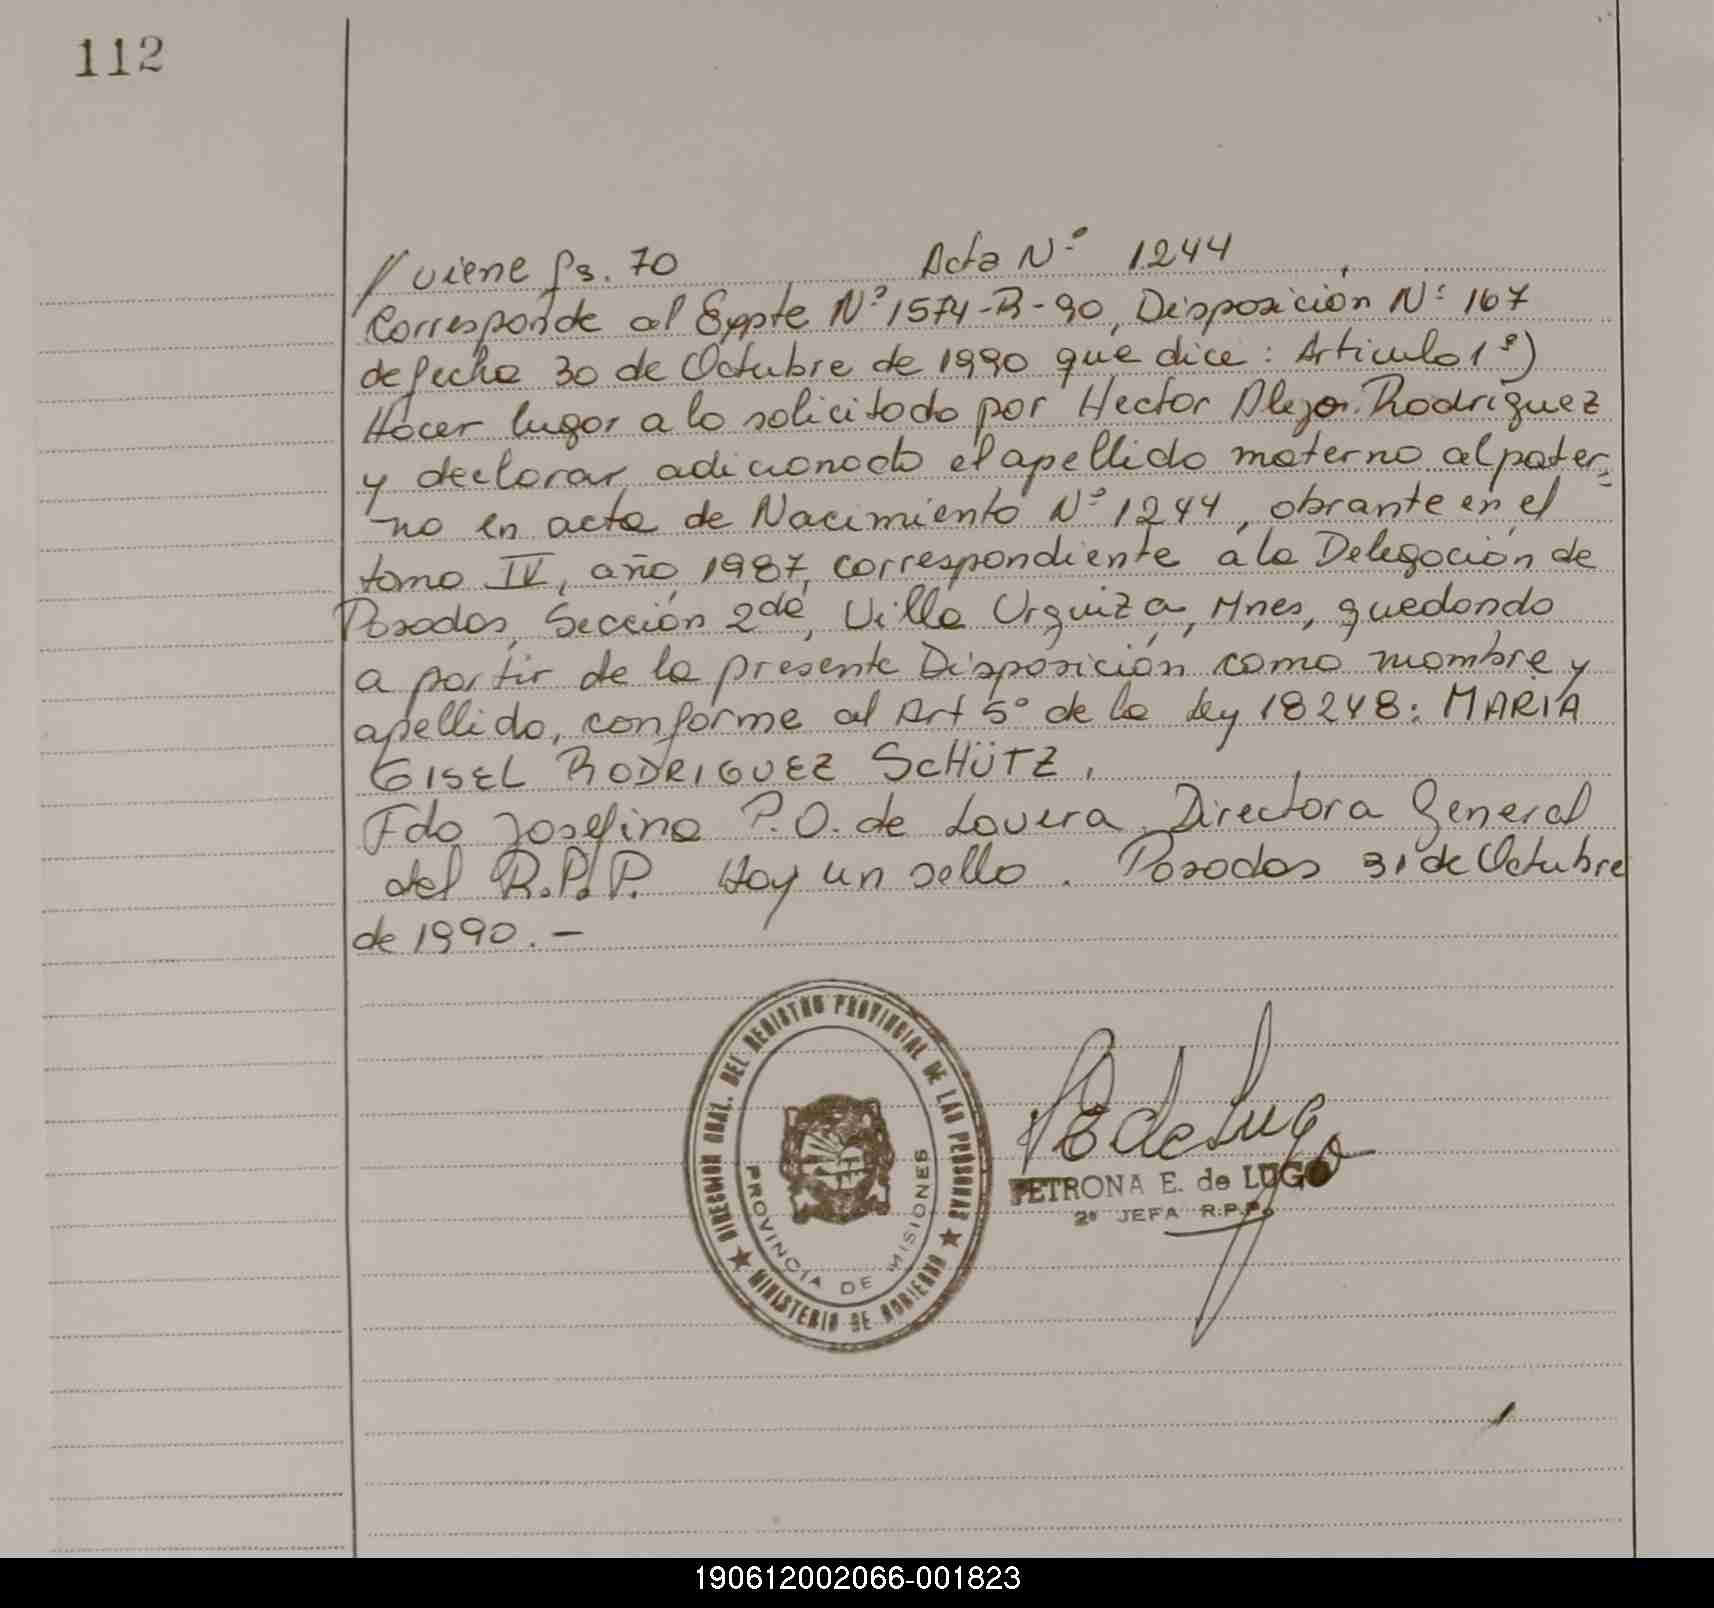 112
// viene fs. 70 Acta Nº 1244
Corresponde al Expte Nº 1574-R-90, Disposición Nº 167
de fecha 30 de Octubre de 1990 que dice: Articulo 1º)
Hacer lugar a lo solicitado por Hector Alejo. Rodriguez
y declarar adicionado el apellido materno al pater=
no en acta de Nacimiento Nº 1244, obrante en el
tomo IV, año 1987, correspondiente a la Delegación de
Posadas, Sección 2da, Villa Urquiza, Mnes, quedando
a partir de la presente Disposición como nombre y
apellido, conforme al Art 5º de la Ley 18248: MARIA
GISEL RODRIGUEZ SCHÜTZ.
Fdo Josefina P.O. de Lovera Directora General
del R.P.P. Hay un sello. Posadas 31 de Octubre
de 1990. -
DIRECCION GRAL. DEL REGISTRO PROVINCIAL DE LAS PERSONAS
PROVINCIA DE MISIONES
MINISTERIO DE GOBIERNO
PE de Lugo
PETRONA E. de LUGO
2ª JEFA R.P.P.
190612002066-001823